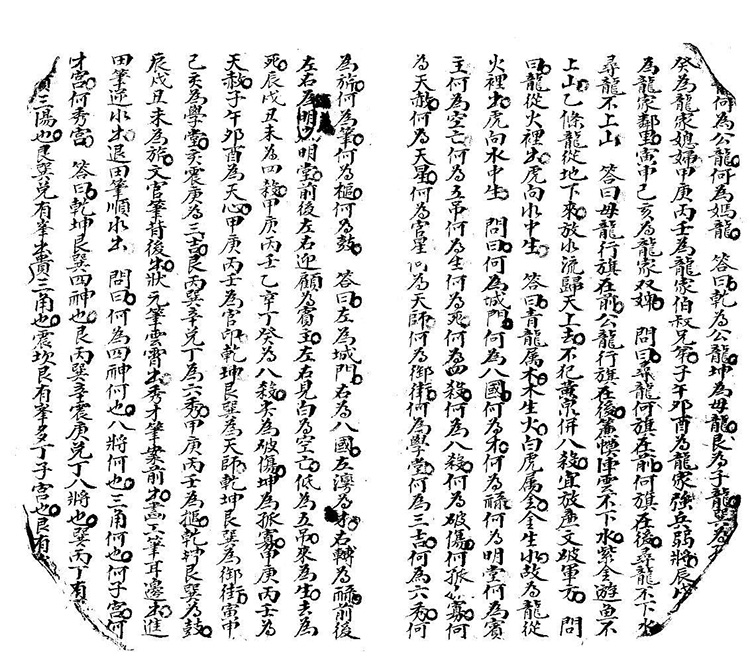 何為公龍何為媽龍 答曰乾為公龍坤為母龍艮為子龍巽為
癸為龍家媳婦甲庚丙壬為龍家伯叔兄弟子午卯酉為龍家強兵弱將辰戌
為龍家鄰里寅申己亥為龍家双娣 問曰尋龍何旗在前何旗在後尋龍不下水
尋龍不上山 答曰母龍行旗在前公龍行旗在後陣雲不下水紫金遊魚不
上山乙條龍從地下來放水流歸天上去不犯黃泉併八殺宜放文破軍方 問
曰龍從火裡出虎向水中生 答曰青龍属木木生火白虎属金金生水故為龍從
火裡出虎向水中生 問曰何為城門何為八國何為何為祿何為明堂何為賓
主何為空亡何為五吊何為生何為死何為四殺何為八殺何為破傷何孤寡何
為天赦何為天星何為宮星何為天師何為御街何為學堂何為三吉何為六秀何
為旂何為筆何為槌何為鼓 答曰左為城門右為八國左為才右轉為祿前後
左右為明明堂前後左右迎顧為賓主左右見凹為空亡低為五吊來為生去為
死辰戌丑未為四殺甲庚丙壬乙辛丁癸為八殺為破傷坤為孤寡甲庚丙壬為
天赦子午卯酉為天心甲庚丙壬為官印乾坤艮巽為天師乾坤艮巽為御街寅申
己亥為學堂亥震庚為三吉艮丙巽辛兑丁為六秀甲庚丙壬為搥乾坤艮巽為鼓
辰戌丑未為旂文官筆背後出狀元筆雲霄出秀才筆案前出畫工筆耳邊出進
田筆逆水出退田筆順水出 問曰何為四神何也八將何也三角何也何子宮何
才宮何秀宮 答曰乾坤艮巽四神也艮丙巽辛震庚兑丁八將也巽丙丁有
三陽也艮巽兑有峯出貴三角也震坎艮有峯多丁子宮也艮有